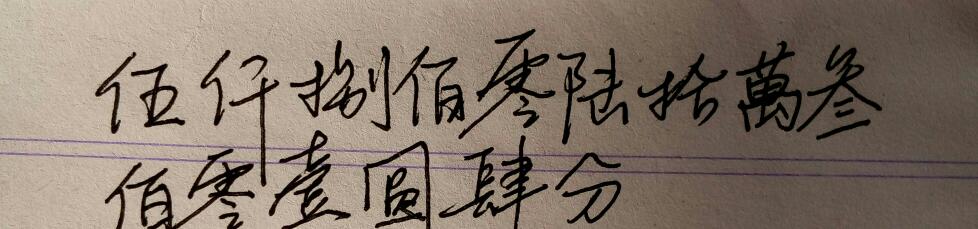 伍仟捌佰零陆拾萬叁
佰零壹圆肆分